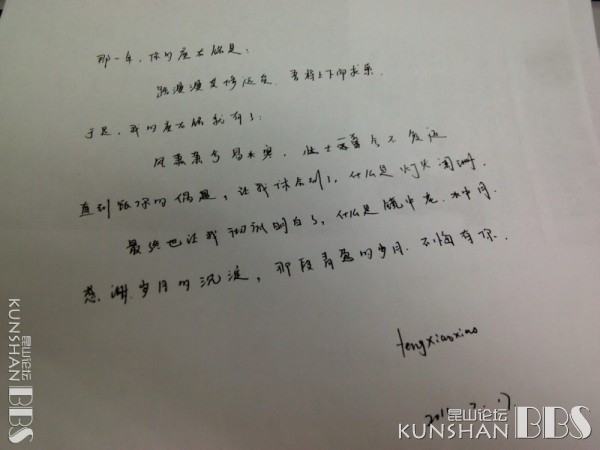 那一年，你的座右铭是：
路漫漫其修远兮，吾将上下而求索.
于是，我的座右铭就有了：
风萧萧兮易水寒，壮士一去兮不复返
直到跟你的偶遇，让我体会到了，什么是灯火阑珊.
最终也让我彻底明白了，什么是镜中花.水中月.
感谢岁月的沉淀，那段青葱的岁月.不悔有你.
tengxiaoxiao
昆山论坛
KUNSHAN BBS
昆山论坛
KUNSHAN BBS